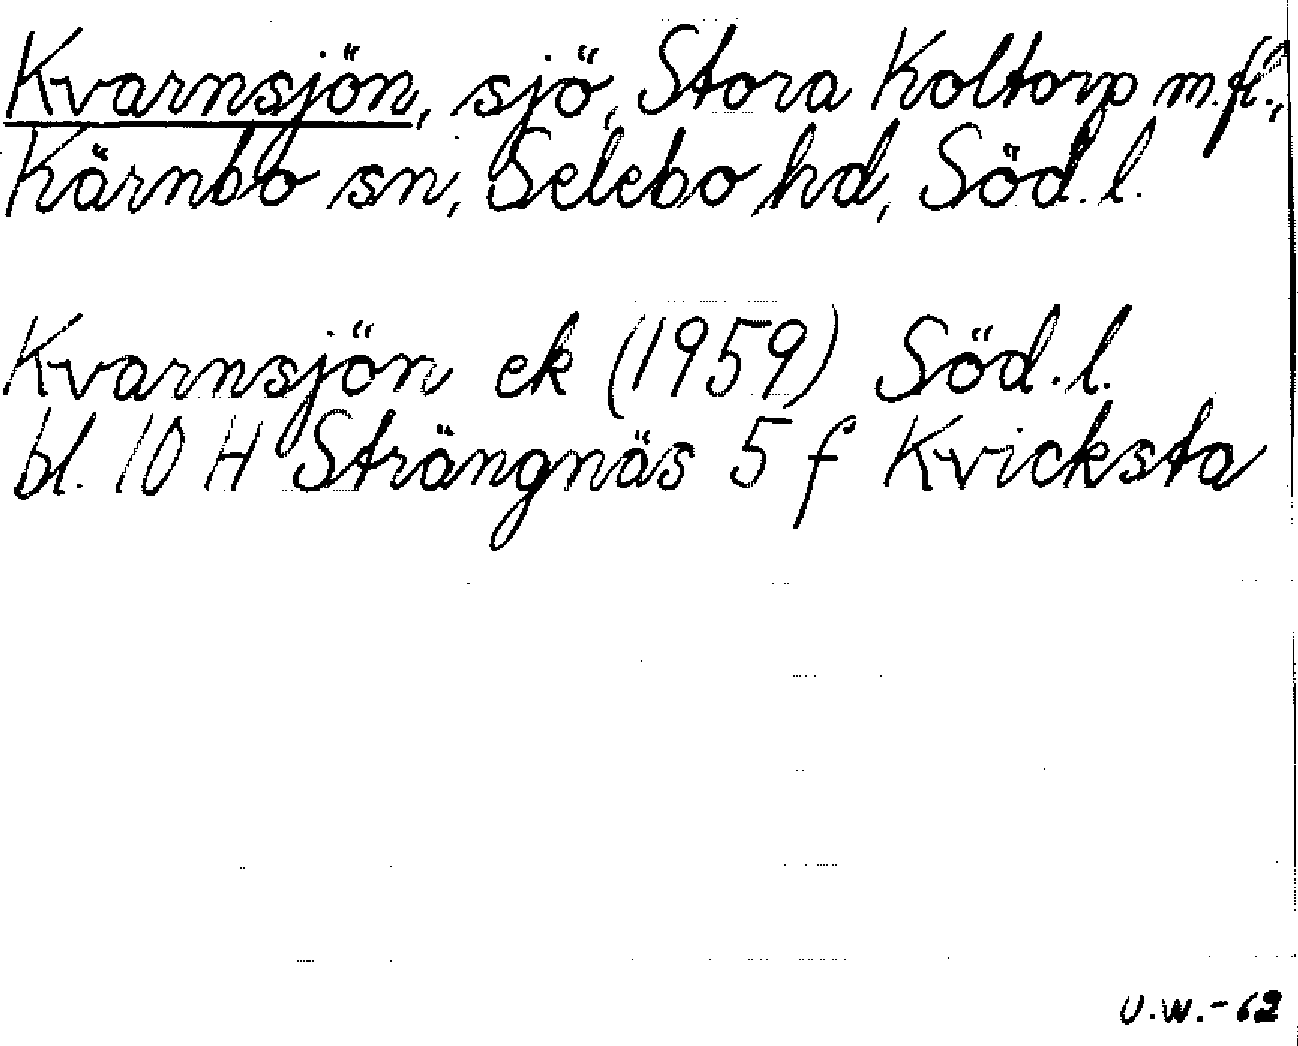 Kvarnsjön, sjö, Stora Koltorp m.fl.,
Kärnbo sn, Selebo hd, Söd.l.
Kvarnsjön ek (1959) Söd.l.
bl. 10 H Strängnäs 5 f Kvicksta
U.W.-62